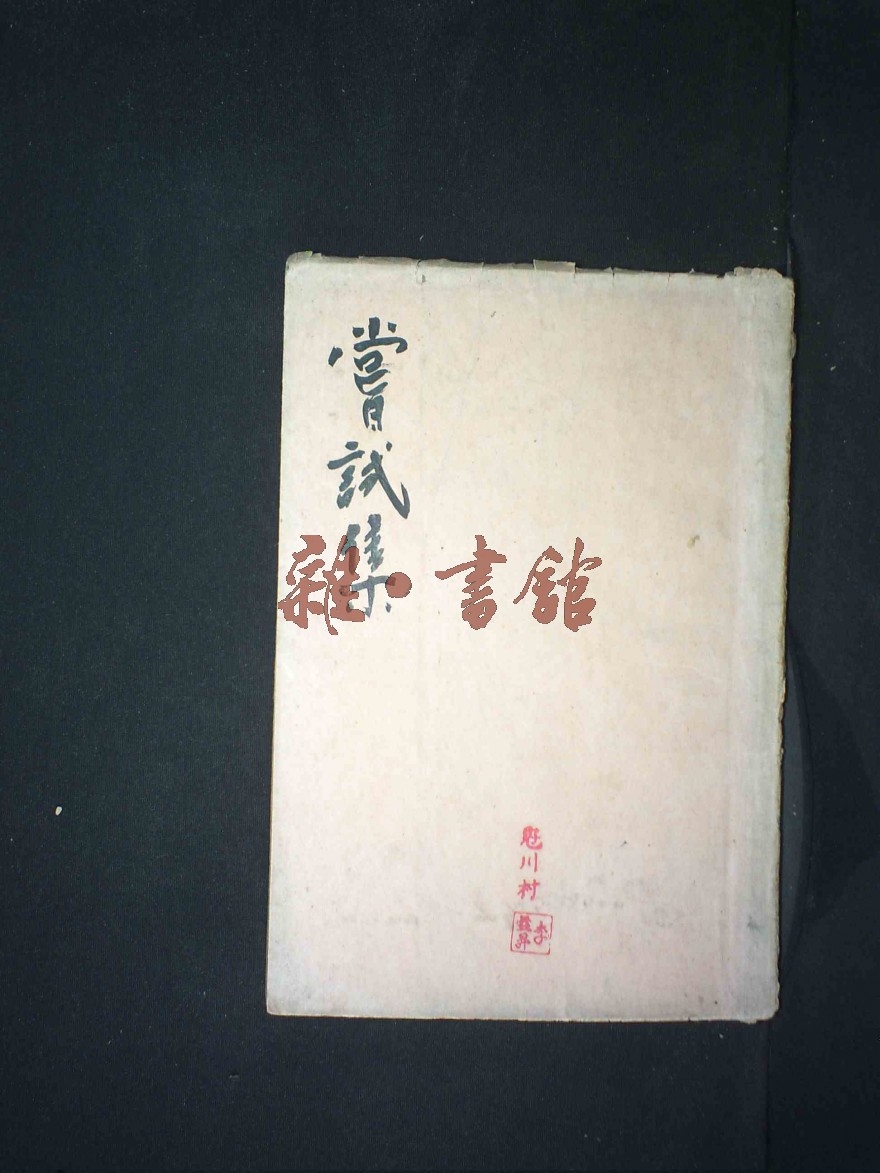 嘗試集
雜·書館
川村
李
昇